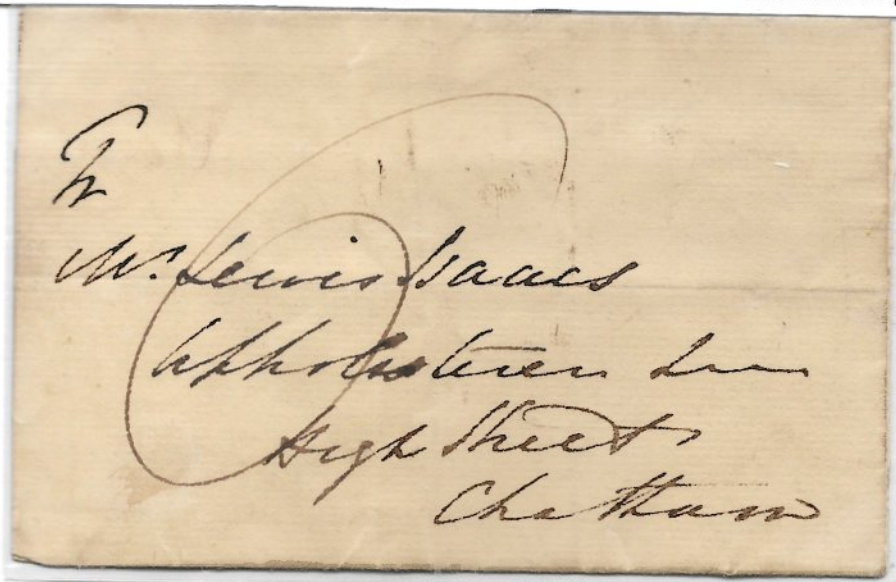 To
Mr. Lewis Isaacs
Upholsterer
High Street
Chatham